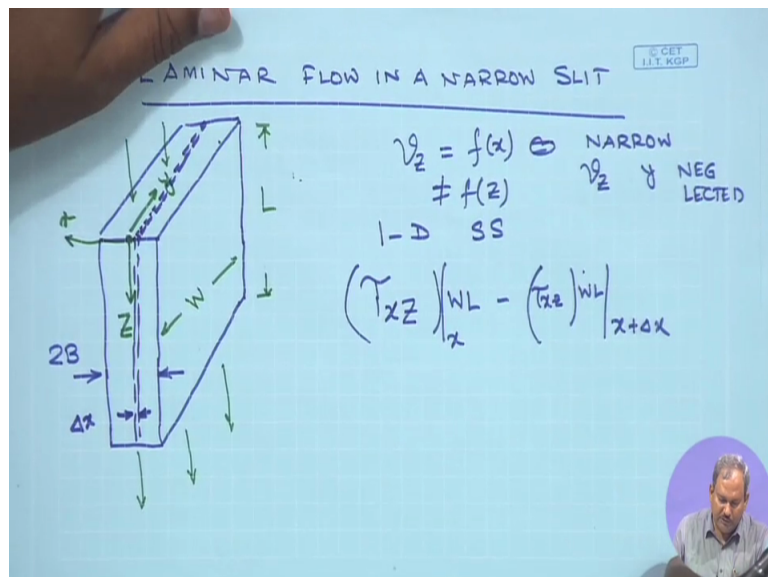 LAMINAR FLOW IN A NARROW SLIT
© CET
I.I.T. KGP
v_z = f(x) ⊖ NARROW
≠ f(z) v_z y NEG
LECTED
1-D SS
(τ_xz)|_x WL - (τ_xz) WL|_x+Δx
x
y
z
L
W
2B
Δx